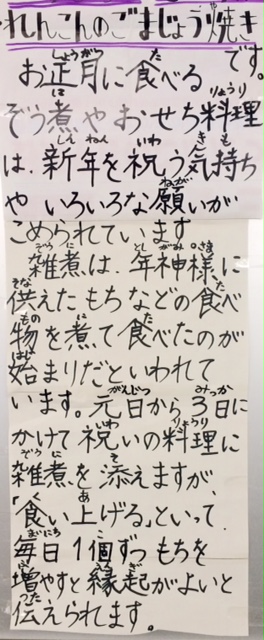 れんこんのごまじょう焼き
です。
お正月に食べる
ぞう煮やおせち料理
は、新年を祝う気持ち
やいろいろな願いが
こめられています
雑煮は、年神様に
供えたもちなどの食べ
物を煮て食べたのが
始まりだといわれて
います。元日から3日に
かけて祝いの料理に
雑煮を添えますが、
「食い上げる」といって、
毎日1個ずつもちを
増やすと縁起がよいと
伝えられます。